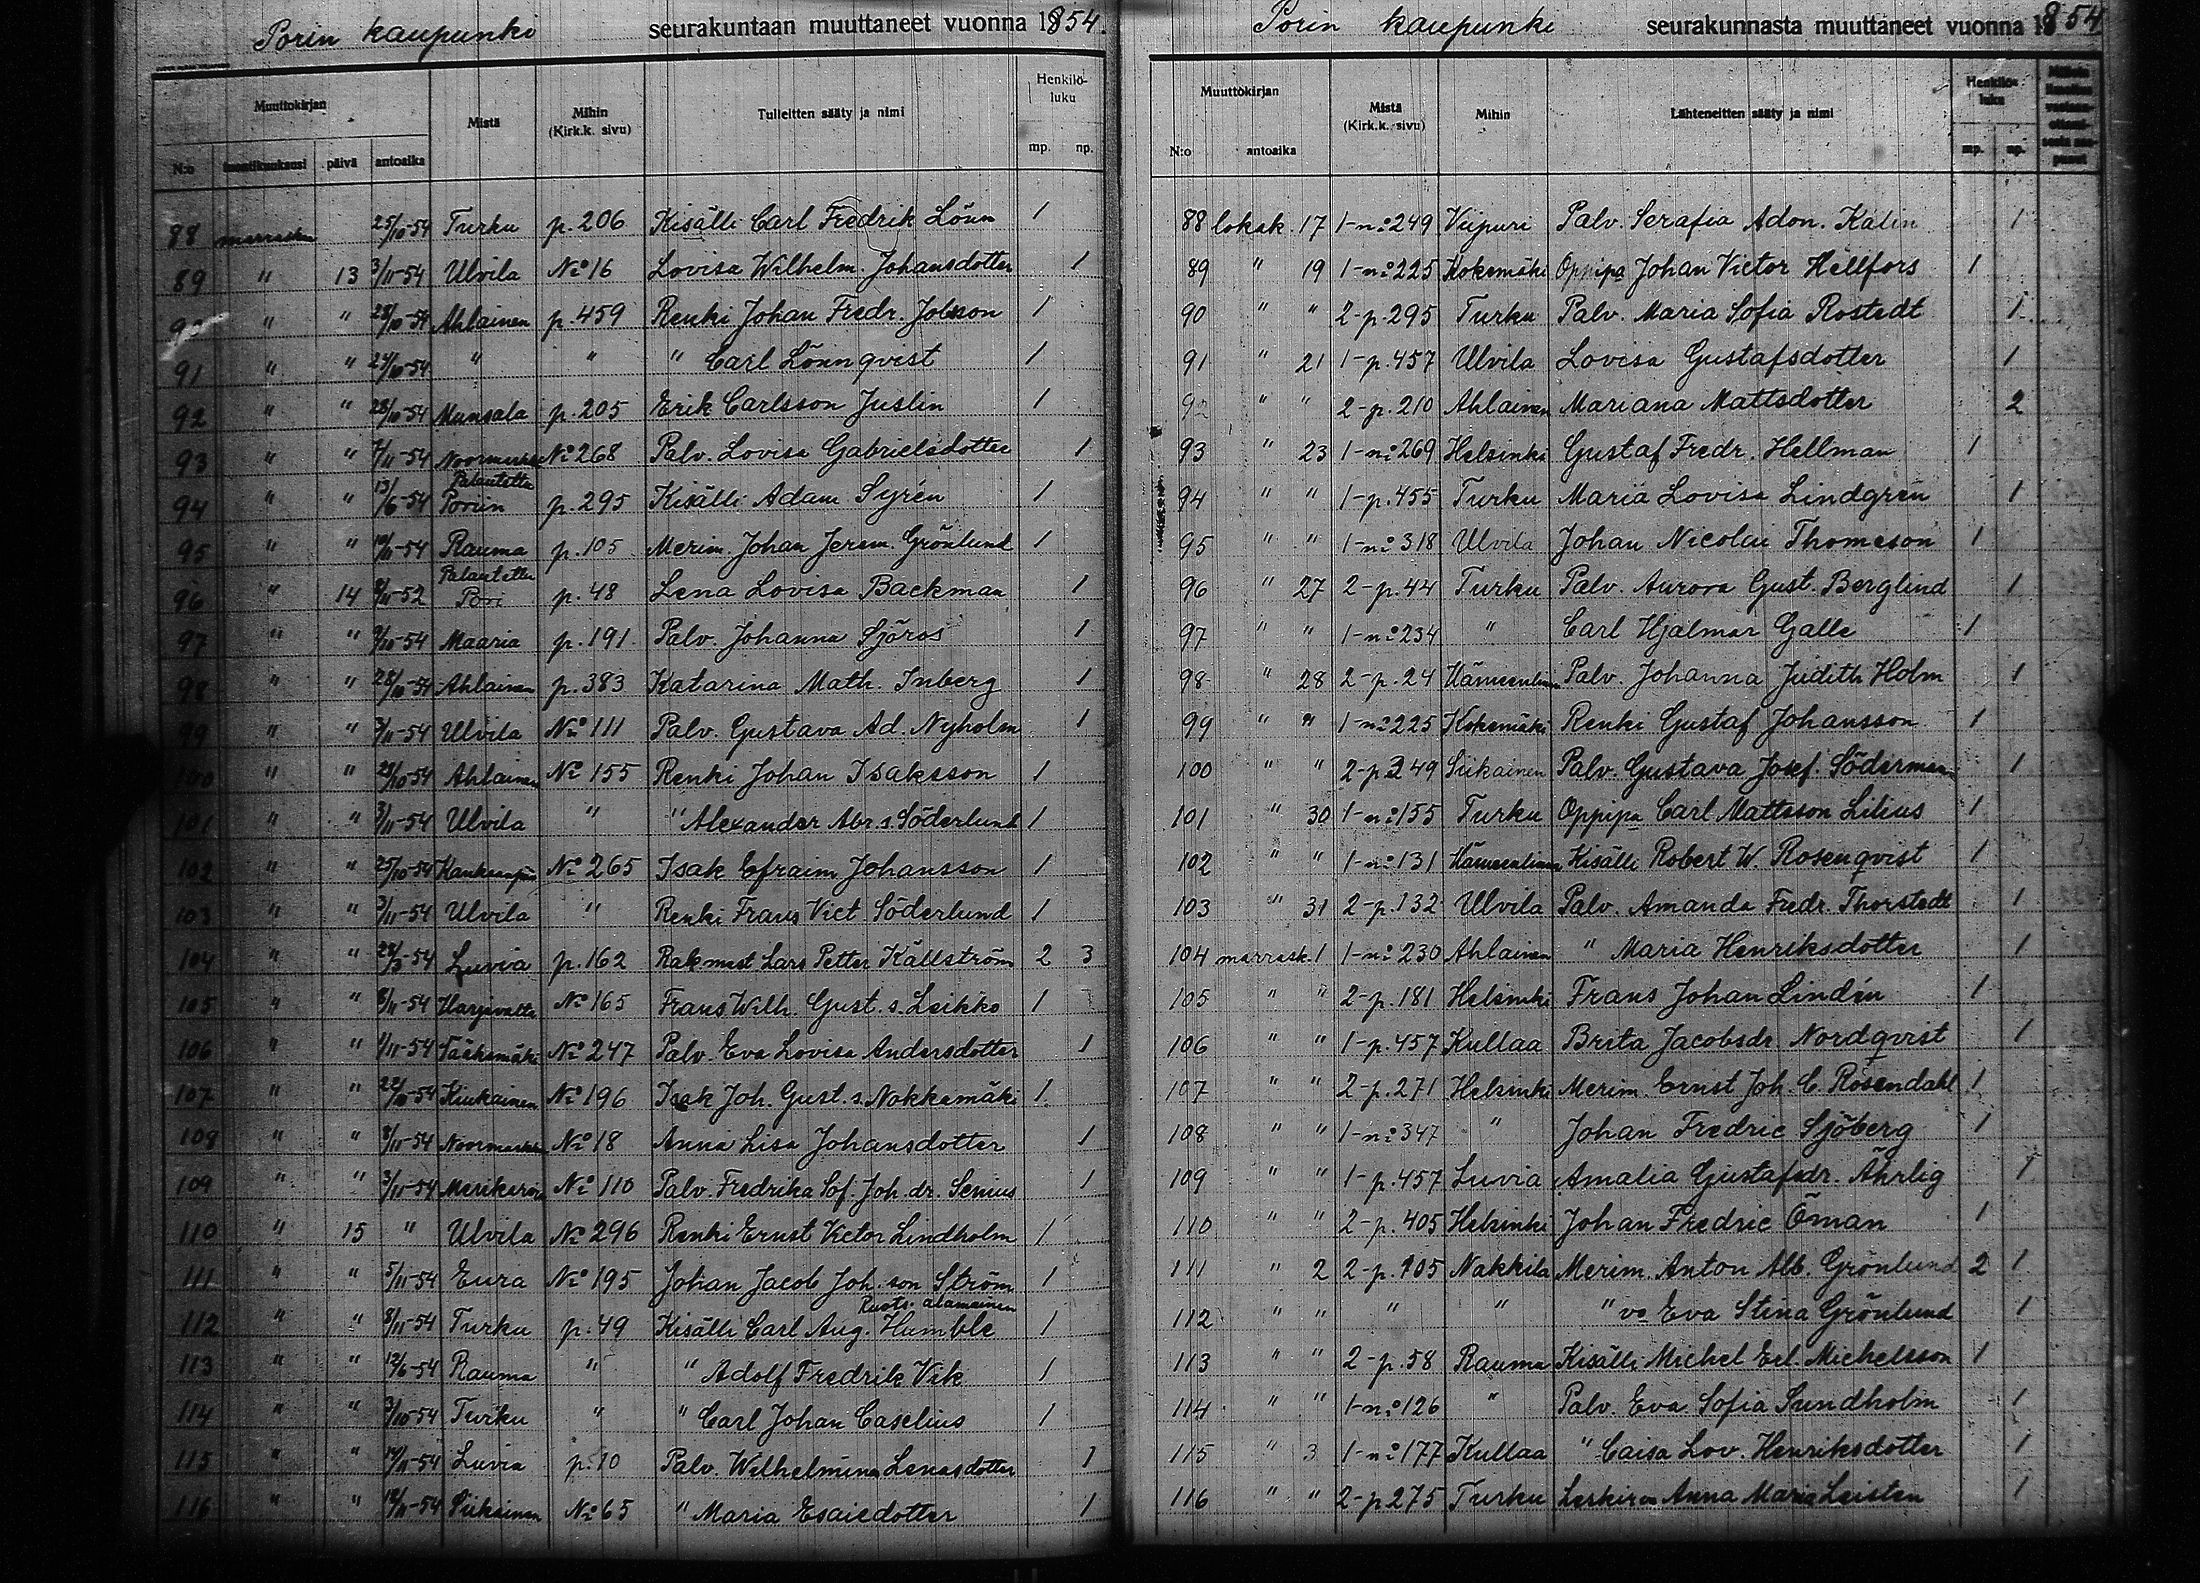 Porin kaupunki seurakuntaan muuttaneet vuonna 1854.
Muuttokirjan Mistä Mihin (Kirk.k. sivu) Tulleitten sääty ja nimi Henkilö-luku
N:o päivä antoaika mp. np.
88 marrask. 25/10-54 Turku p. 206 Kisälli Carl Fredrik Lönn 1
89 " 13 3/11-54 Ulvila No 16 Lovisa Wilhelm. Johansdotter 1
90 " " 28/10-54 Ahlainen p. 459 Renki Johan Fredr. Jobsson 1
91 " " 24/10-54 " " " Carl Lönnqvist 1
92 " " 28/10-54 Munsala p. 205 Erik Carlsson Juslin 1
93 " " 7/11-54 Noormarkku No 268 Palv. Lovisa Gabrielsdotter 1
94 " " 13/6-54 Palautettu Poriin p. 295 Kisälli Adam Syrén 1
95 " " 10/11-54 Rauma p. 105 Merim. Johan Jerem. Grönlund 1
96 " 14 9/11-52 Palautettu Pori p. 48 Lena Lovisa Backman 1
97 " " 9/10-54 Maaria p. 191 Palv. Johanna Sjöros 1
98 " " 28/10-54 Ahlainen p. 383 Katarina Math. Inberg 1
99 " " 3/11-54 Ulvila No 111 Palv. Gustava Ad. Nyholm 1
100 " " 28/10-54 Ahlainen No 155 Renki Johan Isaksson 1
101 " " 3/11-54 Ulvila " " Alexander Abr.s. Söderlund 1
102 " " 25/10-54 Kankaanpää No 265 Isak Efraim Johansson 1
103 " " 3/11-54 Ulvila " Renki Frans Vict. Söderlund 1
104 " " 28/3-54 Luvia p. 162 Rak.mest. Lars Petter Källström 2 3
105 " " 8/11-54 Harjavalta No 165 Frans Wilh. Gust. s. Leikko 1
106 " " 1/11-54 Säkemäki No 247 Palv. Eva Lovisa Andersdotter 1
107 " " 22/10-54 Kiukainen No 196 Isak Joh. Gust. s. Nokkamäki 1
108 " " 8/11-54 Noormarkku No 18 Anna Lisa Johansdotter 1
109 " " 3/11-54 Merikarvia No 110 Palv. Fredrika Sof. Joh. dr. Senius 1
110 " 15 " Ulvila No 296 Renki Ernst Victor Lindholm 1
111 " " 5/11-54 Eura No 195 Johan Jacob Joh.son Ström 1
Ruots. alamainen
112 " " 8/11-54 Turku p. 49 Kisälli Carl Aug. Humble 1
113 " " 12/6-54 Rauma " " Adolf Fredrik Vik 1
114 " " 3/10-54 Turku " " Carl Johan Caselius 1
115 " " 14/11-54 Luvia p. 10 Palv. Wilhelmina Lenasdotter 1
116 " " 12/11-54 Siikainen No 65 " Maria Esaiedotter 1
Porin kaupunki seurakunnasta muuttaneet vuonna 1854
Muuttokirjan Mistä (Kirk.k. sivu) Mihin Lähteneitten sääty ja nimi Henkilö-luku
N:o antoaika mp. np.
88 lokak. 17 1-no 249 Viipuri Palv. Serafia Adon. Kalin 1
89 " 19 1-no 225 Kokemäki Oppipa Johan Victor Hellfors 1
90 " " 2-p. 295 Turku Palv. Maria Sofia Rostedt 1
91 " 21 1-p. 457 Ulvila Lovisa Gustafsdotter 1
92 " " 2-p. 210 Ahlainen Mariana Mattsdotter 2
93 " 23 1-no 269 Helsinki Gustaf Fredr. Hellman 1
94 " " 1-p. 455 Turku Maria Lovisa Lindgrén 1
95 " " 1-no 318 Ulvila Johan Nicolai Thomeson 1
96 " 27 2-p. 44 Turku Palv. Aurora Gust. Berglind 1
97 " " 1-no 234 " Carl Hjalmar Galle 1
98 " 28 2-p. 24 Hämeenlinna Palv. Johanna Judith Holm 1
99 " " 1-no 225 Kokemäki Renki Gustaf Johansson 1
100 " " 2-p 249 Siikainen Palv. Gustava Josef. Södermann 1
101 " 30 1-no 155 Turku Oppipa Carl Mattsson Lilius 1
102 " " 1-no 131 Hämeenlinna Kisälli Robert W. Rosenqvist 1
103 " 31 2-p. 132 Ulvila Palv. Amanda Fredr. Thorstedt 1
104 marrask. 1 1-no 230 Ahlainen " Maria Henriksdotter 1
105 " " 2-p. 181 Helsinki Frans Johan Lindén 1
106 " " 1-p. 457 Kullaa Brita Jacobsdr Nordqvist 1
107 " " 2-p. 271 Helsinki Merim. Ernst Joh. C. Rosendahl 1
108 " " 1-no 347 " Johan Fredric Sjöberg 1
109 " " 1-p. 457 Luvia Amalia Gustafsdr. Ährlig 1
110 " " 2-p. 405 Helsinki Johan Fredric Öman 1
111 " 2 2-p. 105 Nakkila Merim. Anton Alb. Grönlund 2 1
112 " " " " " vo Eva Stina Grönlund 1
113 " " 2-p. 58 Rauma Kisälli Michel Erl. Michelsson 1
114 " " 1-no 126 " Palv. Eva Sofia Sundholm 1
115 " 3 1-no 177 Kullaa " Caisa Lov. Henriksdotter 1
116 " " 2-p 275 Turku Leskirva Anna Maria Leisten 1